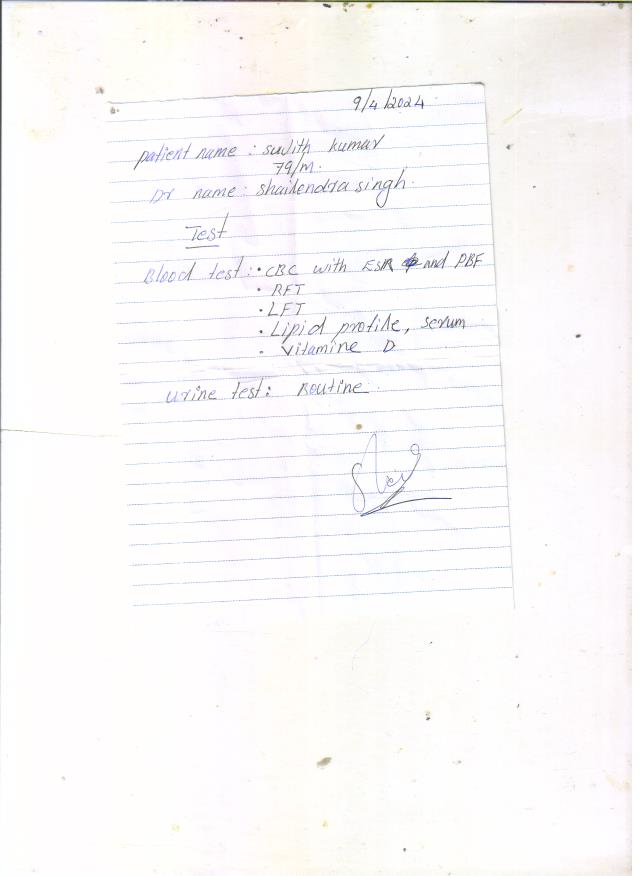 9/4/2024
patient name : sudith kumar
79/m.
Dr name: shailendra singh.
Test
Blood test: • CBC with ESR and PBF
• RFT
• LFT
• Lipid profile, serum
• Vitamine D
Urine test: Routine